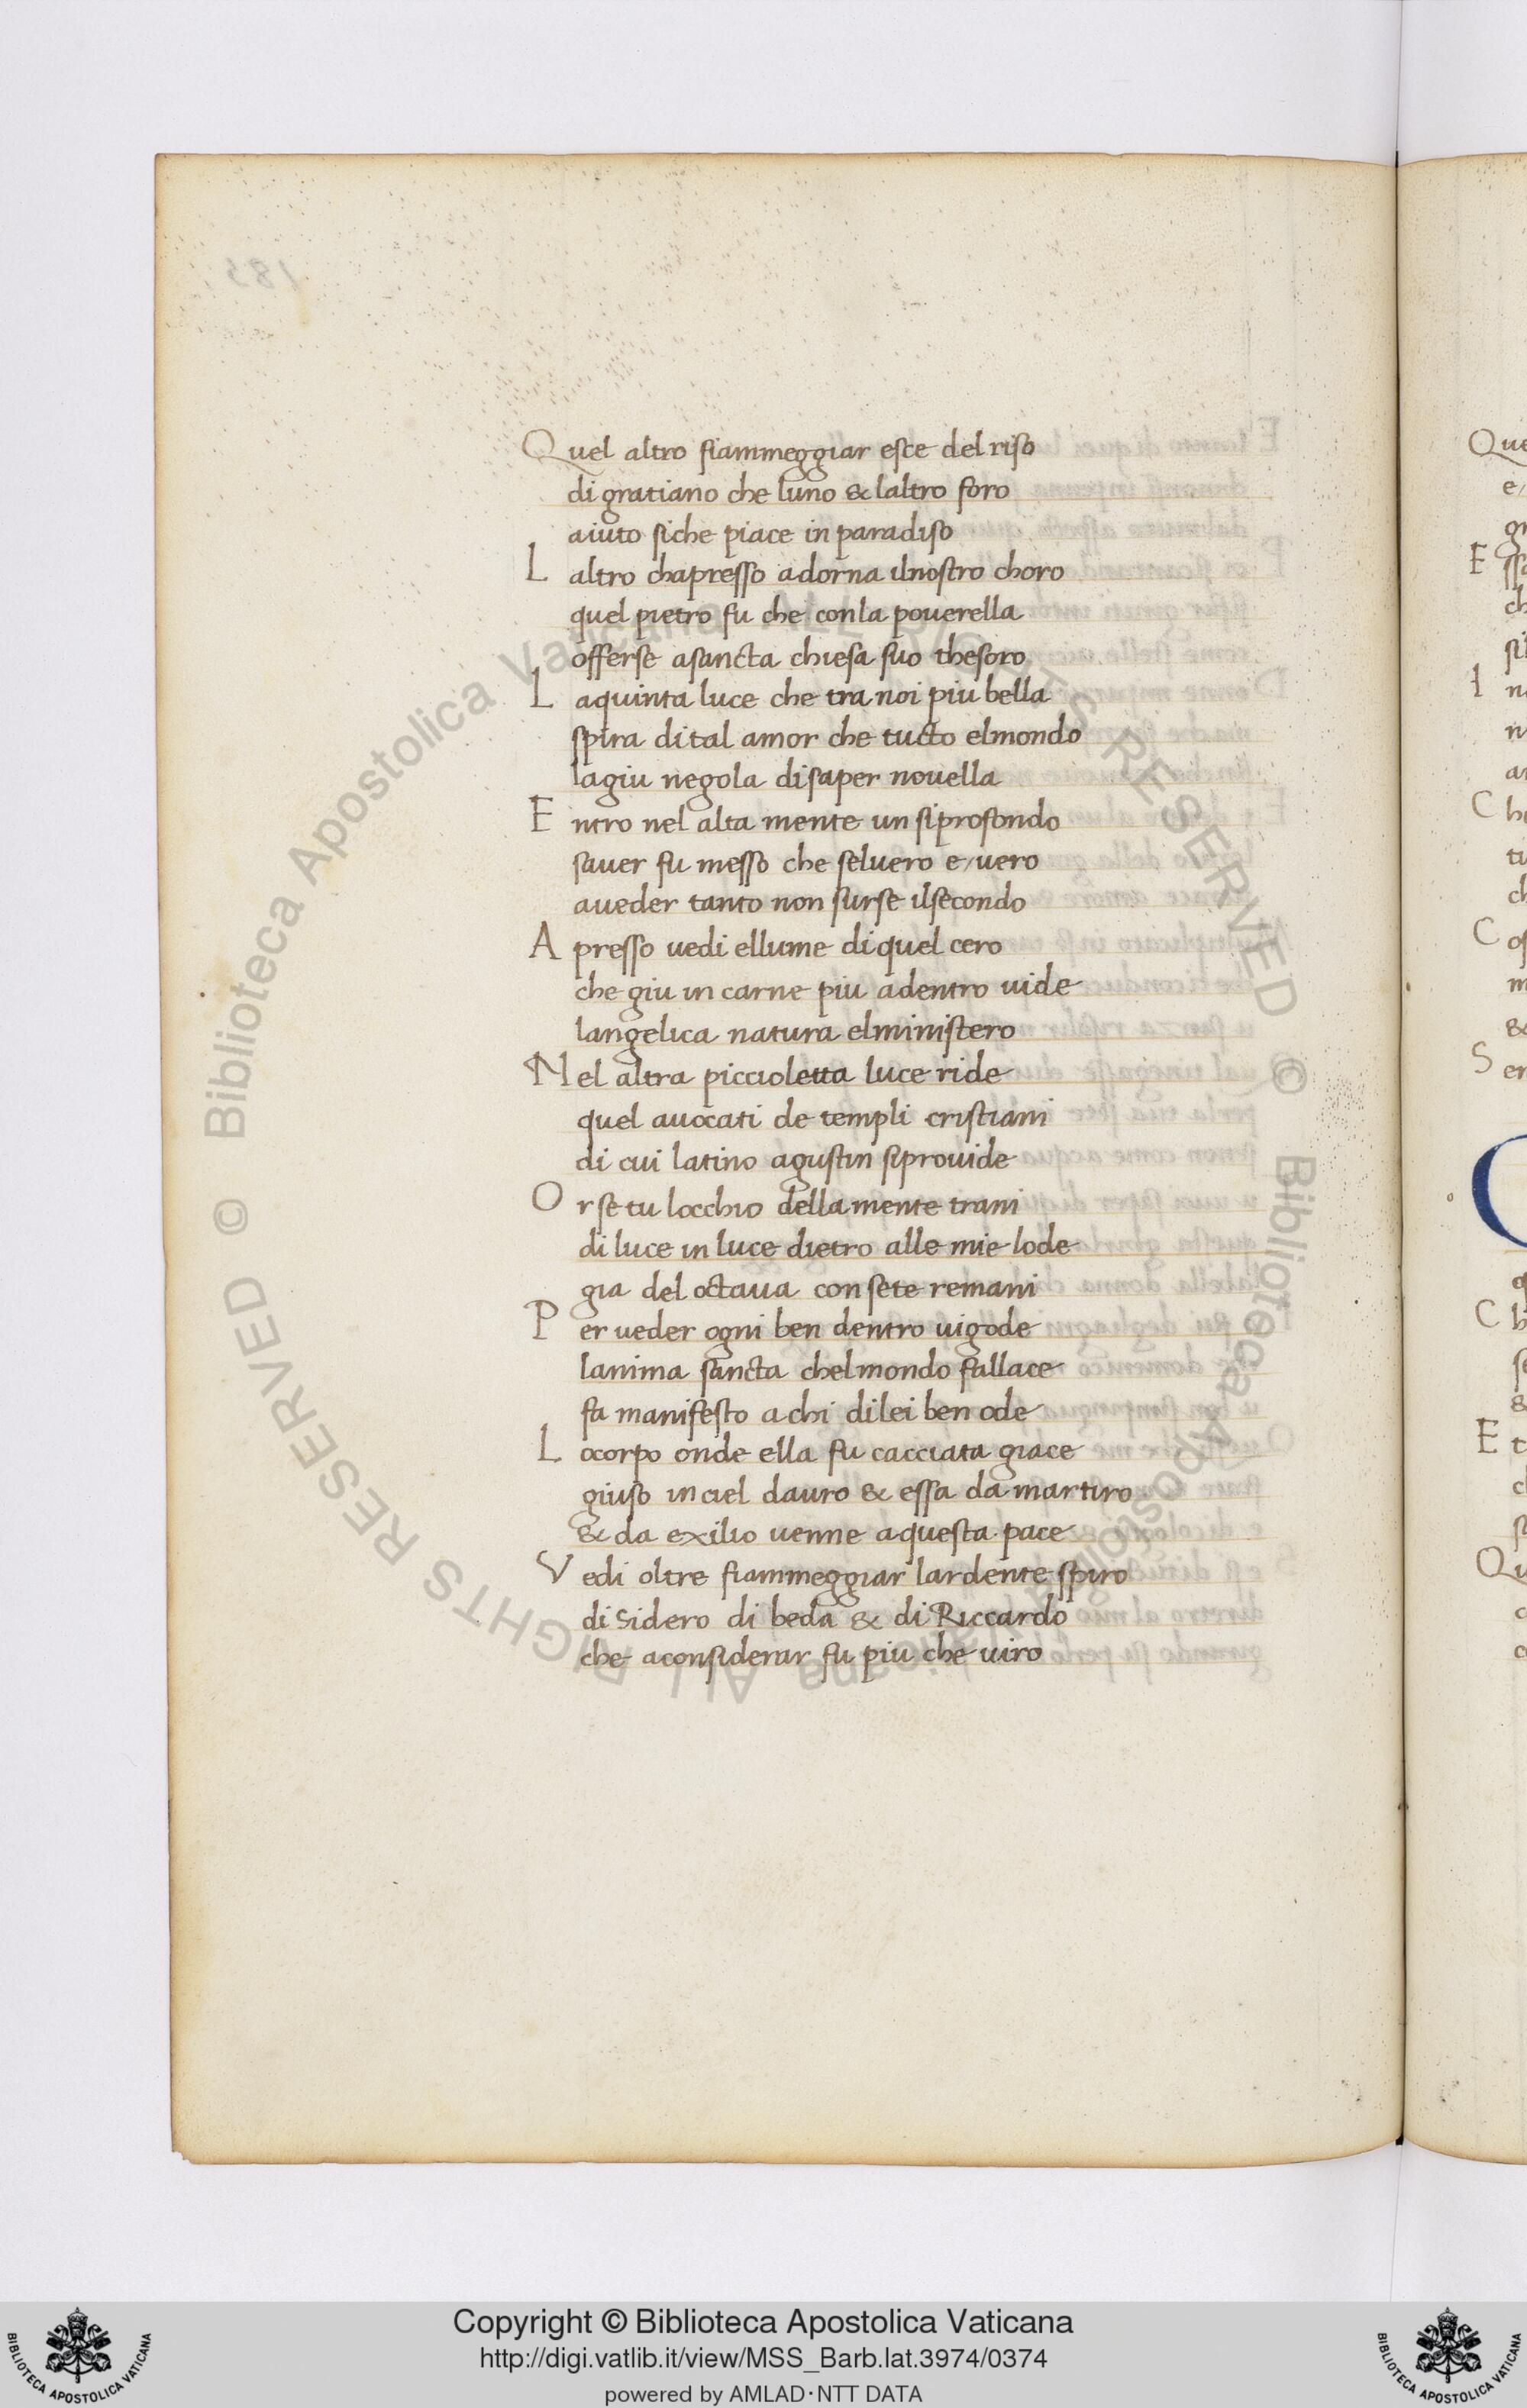 Quel altro fiammeggiar esce del riso
di gratiano che luno & laltro foro
aiuto siche piace in paradiso
L altro chapresso adorna ilnostro choro
quel pietro fu che conla pouerella
offerse asancta chiesa suo thesoro
L aquinta luce che tra noi piu bella
spira dital amor che tucto elmondo
lagiu negola disaper nouella
E ntro nel alta mente un siprofondo
sauer fu messo che seluero e/uero
aueder tanto non surse ilsecondo
A presso uedi ellume diquel cero
che giu in carne piu adentro uide
langelica natura elministero
N el altra piccioletta luce ride
quel auocati de templi cristiani
di cui latino agustin siprouide
O r se tu locchio della mente trani
di luce in luce dietro alle mie lode
gia del octaua con sete remani
P er ueder ogni ben dentro uigode
lanima sancta chelmondo fallace
fa manifesto a chi dilei ben ode
L ocorpo onde ella fu cacciata giace
giuso in ciel dauro & essa da martiro
& da exilio uenne aquesta pace
V edi oltre fiammeggiar lardente spiro
di Sidero di beda & di Riccardo
che aconsiderar fu piu che uiro
Copyright © Biblioteca Apostolica Vaticana
http://digi.vatlib.it/view/MSS_Barb.lat.3974/0374
powered by AMLAD·NTT DATA